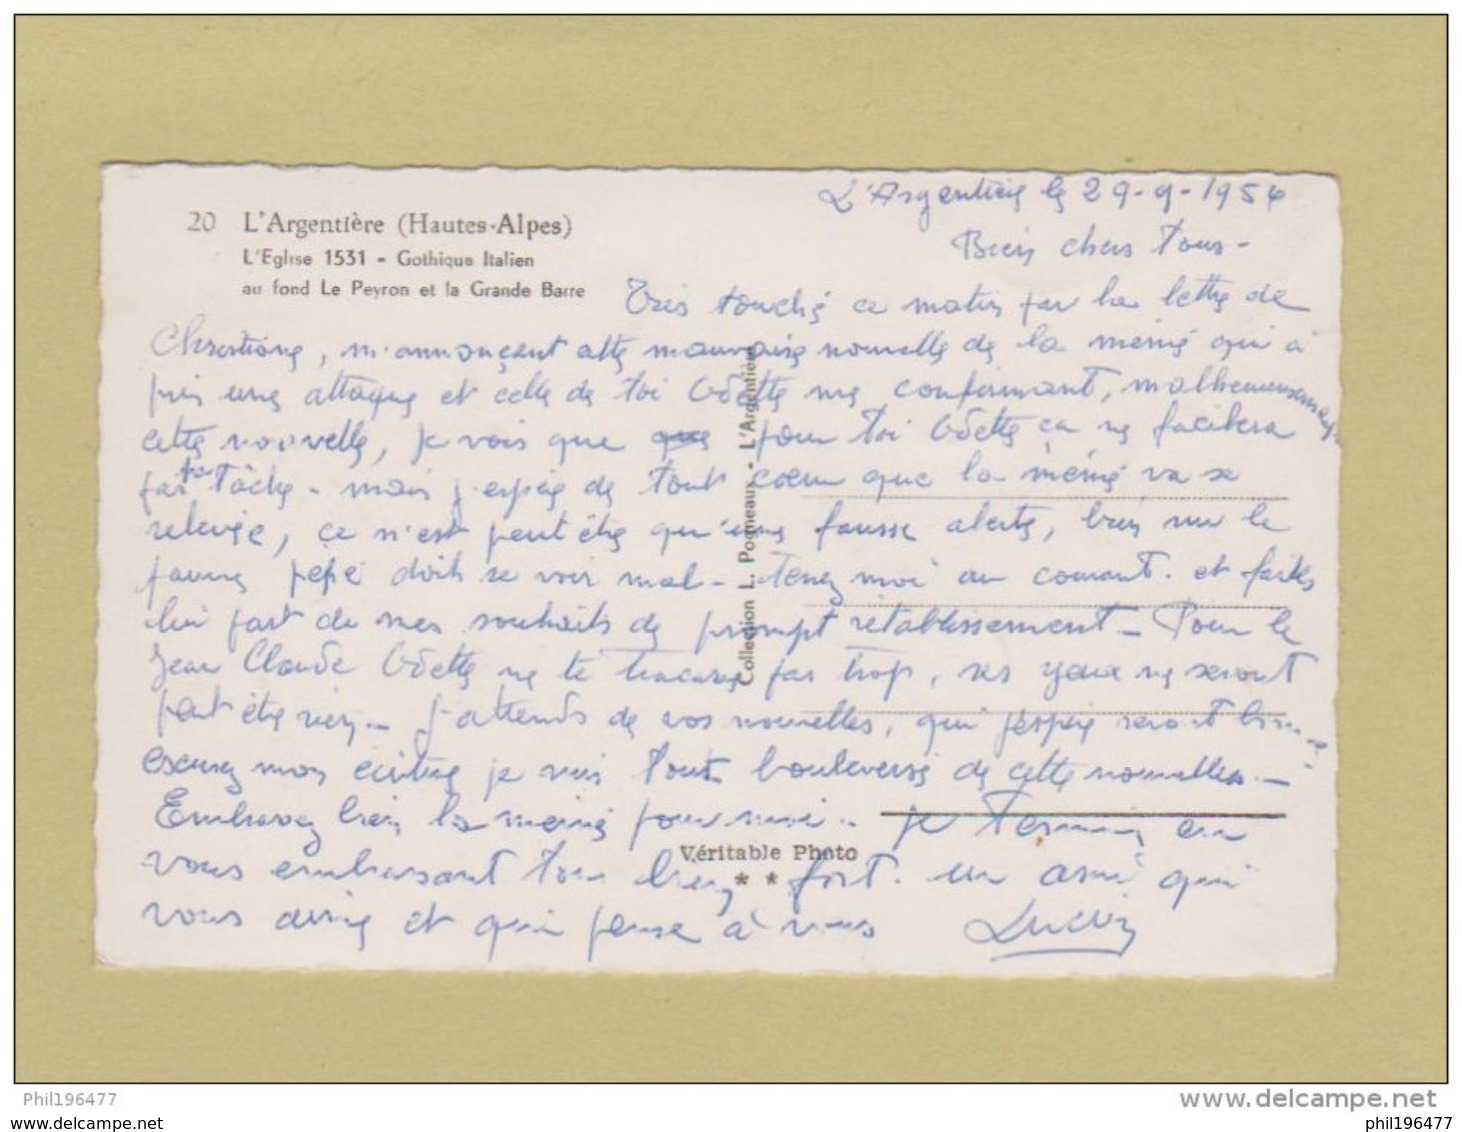 L'Argentière le 29-9-1954
20 L'Argentière (Hautes-Alpes)
L'Eglise 1531 - Gothique Italien
au fond Le Peyron et la Grande Barre
Bien chers Tous -
Très touché ce matin par la lettre de
Christiane, m'annonçant cette mauvaise nouvelle de la mémé qui a
pris une attaque et celle de toi Odette me confirmant, malheureusement
cette nouvelle, je vois que pour toi Odette ça ne facilitera
pas ta tâche - mais j'espère de tout coeur que la mémé va se
relevée, ce n'est peut être qu'une fausse alerte, bien sur le
pauvre pépé doit se voir mal - Tenez moi au courant. et faites
lui part de mes souhaits de prompt rétablissement - Pour le
Jean Claude Odette ne te tracasse pas trop, ses yeux ne seront
peut être rien - J'attends de vos nouvelles, qui j'espère seront bonnes
excusez mon écriture je suis tout bouleversé de cette nouvelles -
Embrassez bien la mémé pour moi - je termine en
vous embrassant tous bien fort. un ami qui
vous aime et qui pense à vous Lucien
Collection L. Pogneaux - L'Argentière
Véritable Photo
* *
Phil196477
www.delcampe.net
phil196477.delcampe.com
phil196477